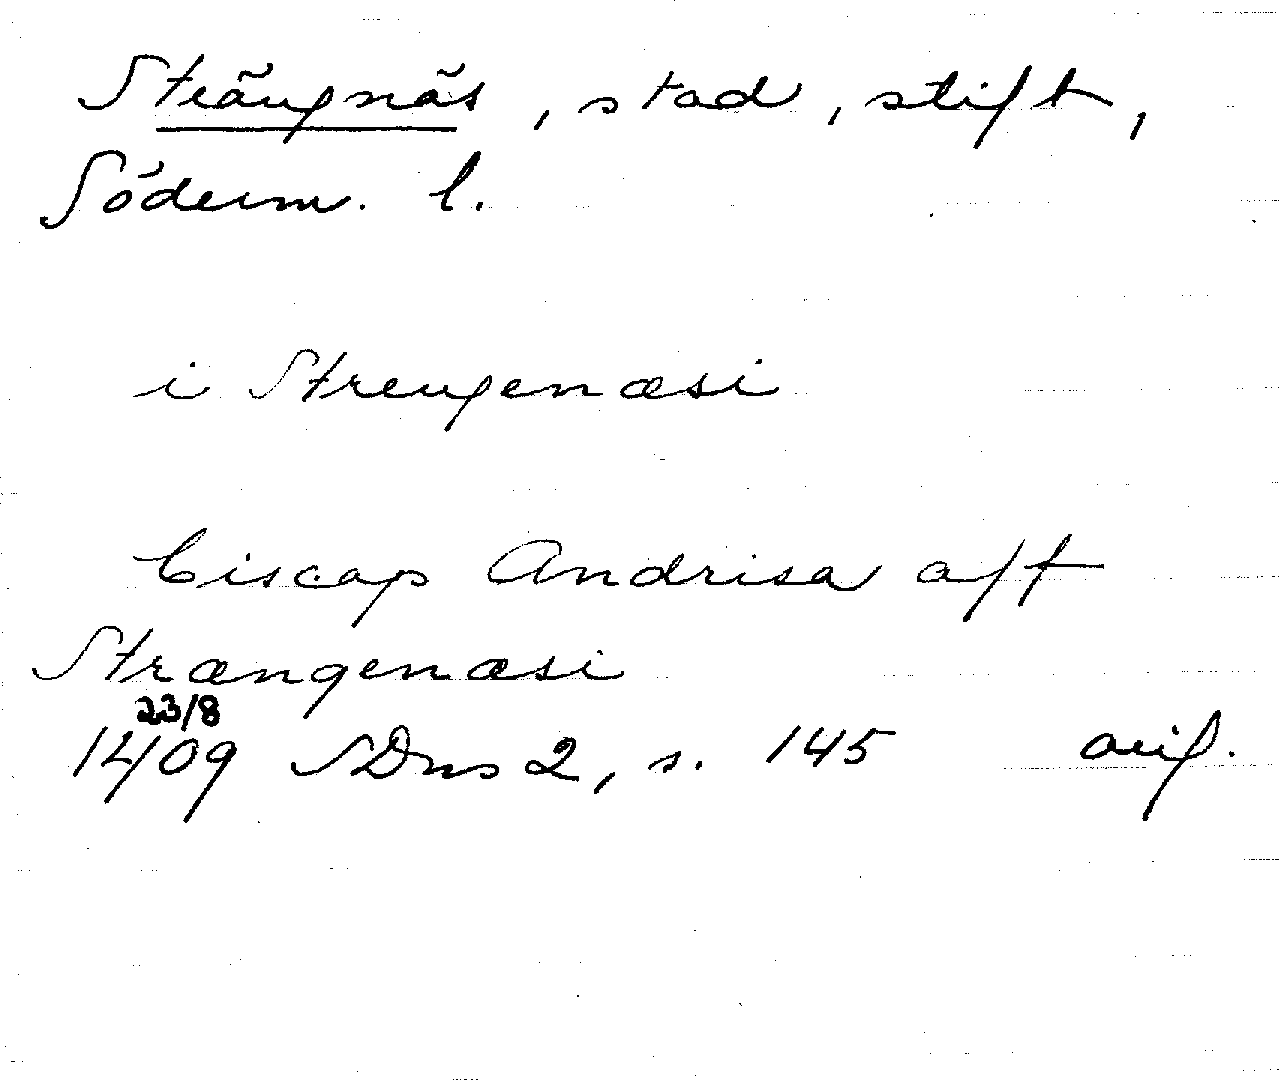 Strängnäs, stad, stift,
Söderm. l.
i Strengenæsi
biscop Andrisa aff
Strængenæsi
23/8
1409 SDns 2, s. 145 orig.